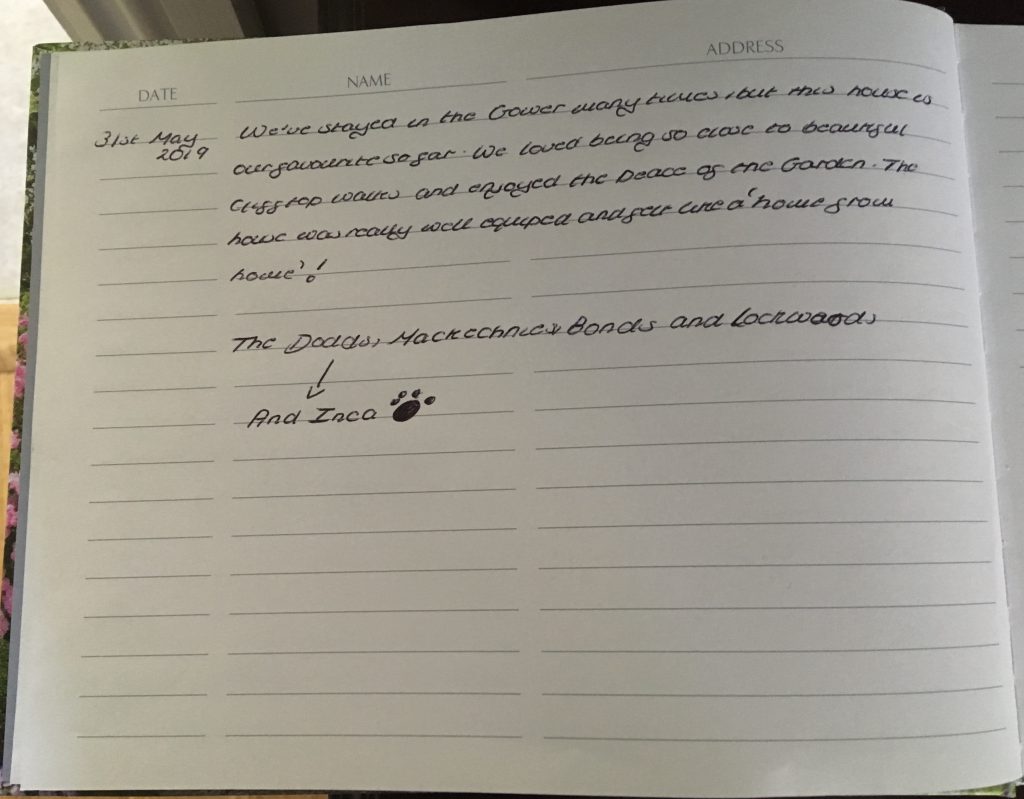 DATE NAME ADDRESS
31st May We've stayed in the Gower many times, but this house is
2019 our favourite so far. We loved being so close to beautiful
clifftop walks and enjoyed the Peace of the Garden. The
house was really well equiped and felt like a 'home from
home'!
The Dodds, Mackechnies & Bonds and Lockwoods
And Inca